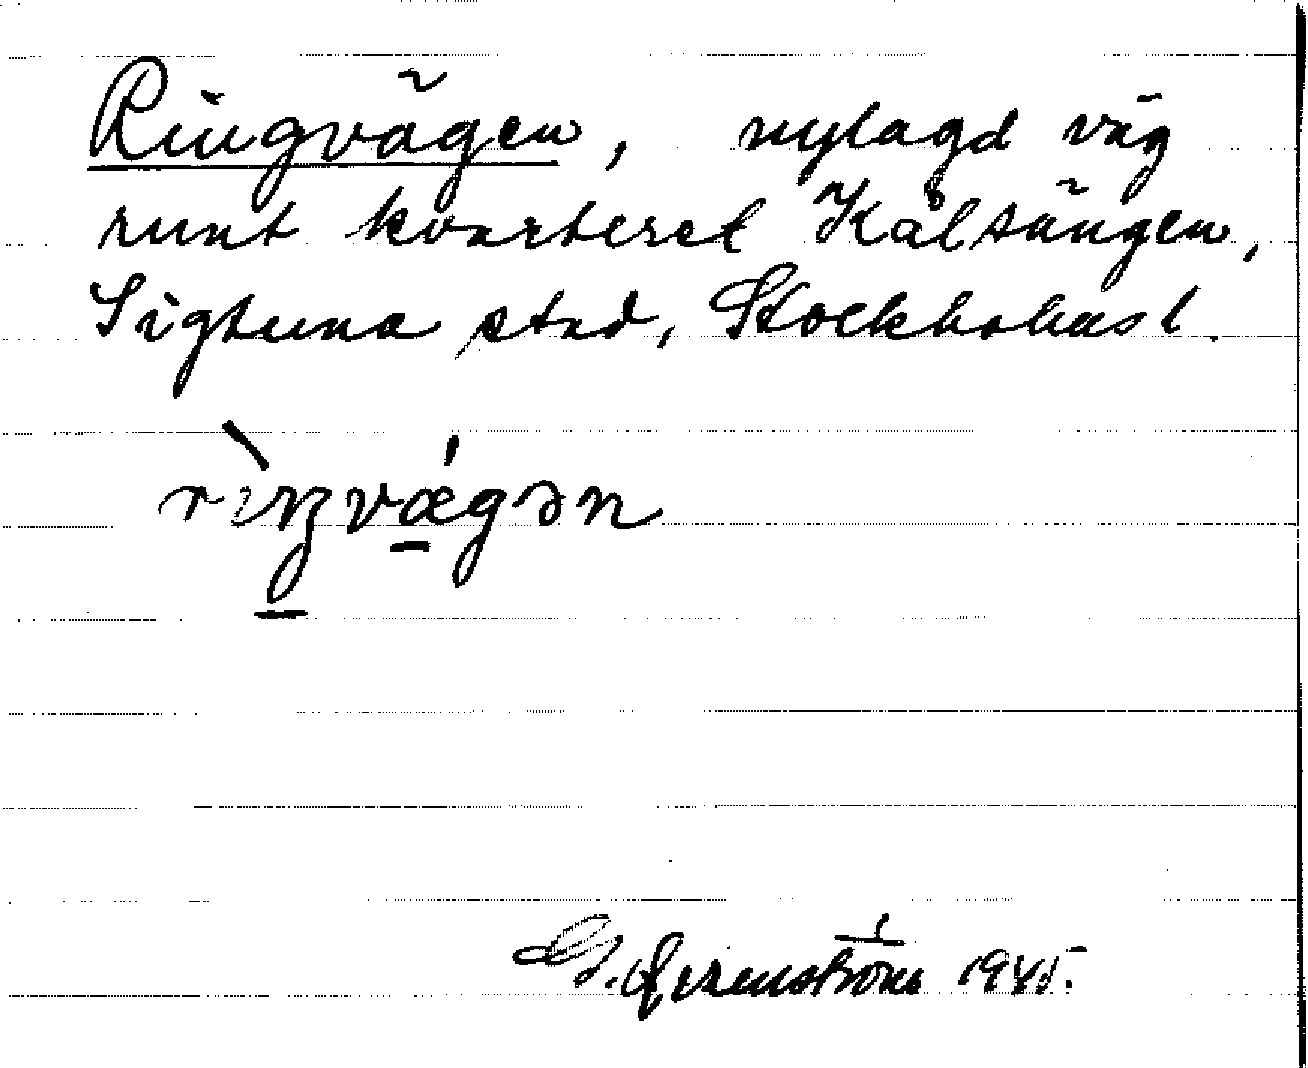 Ringvägen, nylagd väg
runt kvarteret Kålsängen,
Sigtuna stad, Stockholms l.
rìŋvǽgən
G. 1945.